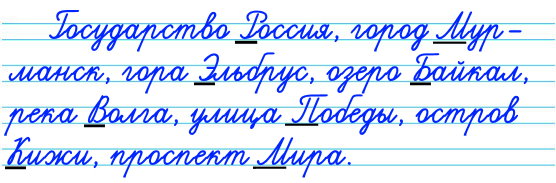 Государство Россия, город Мур-
манск, гора Эльбрус, озеро Байкал,
река Волга, улица Победы, остров
Кижи, проспект Мира.